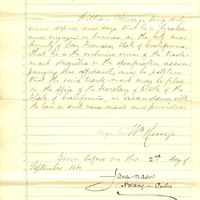 being duly
sworn deposes and says that he is located
and engaged in business in the City and
County of San Francisco, State of California,
that he is the exclusive owner of the trade
mark described in the specification accom-
panying this affidavit, and he petitions
that the said trade mark may be filed
in the office of the Secretary of State of the
State of California, in accordance with
the law in such case made and provided.
Sworn before me this 2nd day of
September 188
James Mason
Notary Public